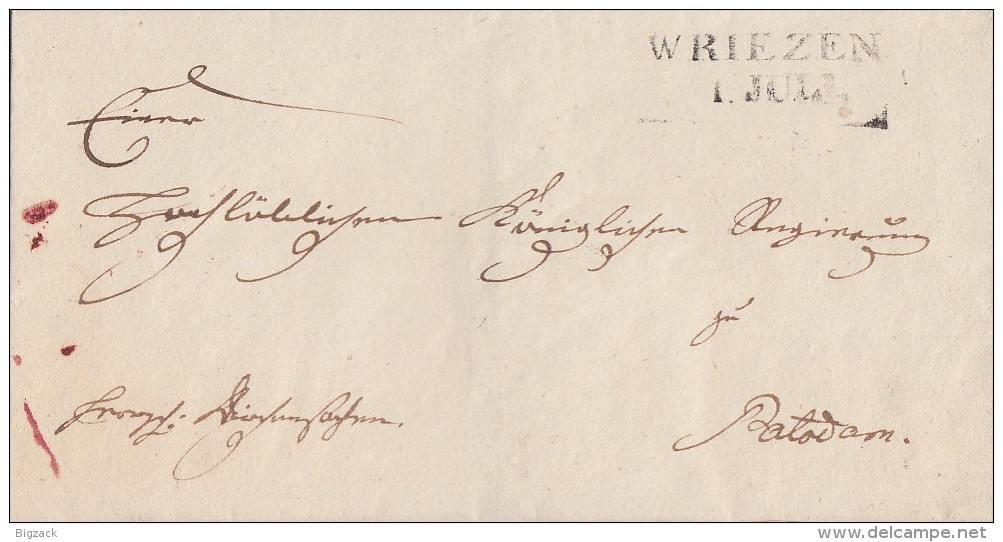 WRIEZEN
1. JULI.
Einer
Hochlöblichen Königlichen Regierung
zu
Herrsch: Kirchensachen.
Potsdam.
Bigzack
delcampe.net